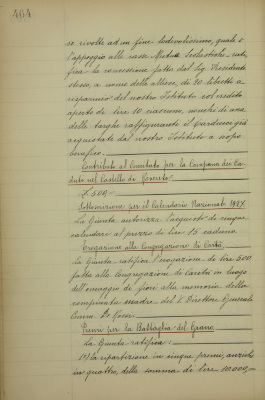 404
si rivolte ad un fine lodevolissimo, quale è
l'appoggio alla casse Mutue Scolastiche, rati
fica la concessione fatta dal Sig. Presidente
stesso, a nome della stessa, di 20 libretti a
risparmio del nostro Istituto col credito
aperto di lire 10 ciascuno, nonchè di una
delle targhe raffiguranti il
acquistate dal nostro Istituto a scopo
benefico.
Contributo al Comitato per la Campana dei Ca
duti nel Castello di Rovereto
£ 500.-
Sottoscrizione per il Calendario Nazionale 1927.
La Giunta autorizza l'acquisto di cinque
calendari al prezzo di lire 15 caduno.
Erogazione alla Congregazione di Carità.
La Giunta ratifica l'erogazione di lire 500
fatta alla Congregazione di Carità in luogo
dell'omaggio di fiori alla memoria della
compianta madre del V. Direttore Generale
Comm. Dr Rossi.
Premi per la Battaglia del Grano.
La Giunta ratifica:
la ripartizione in cinque premi, anzichè
in quattro, della somma di lire 10.000,-